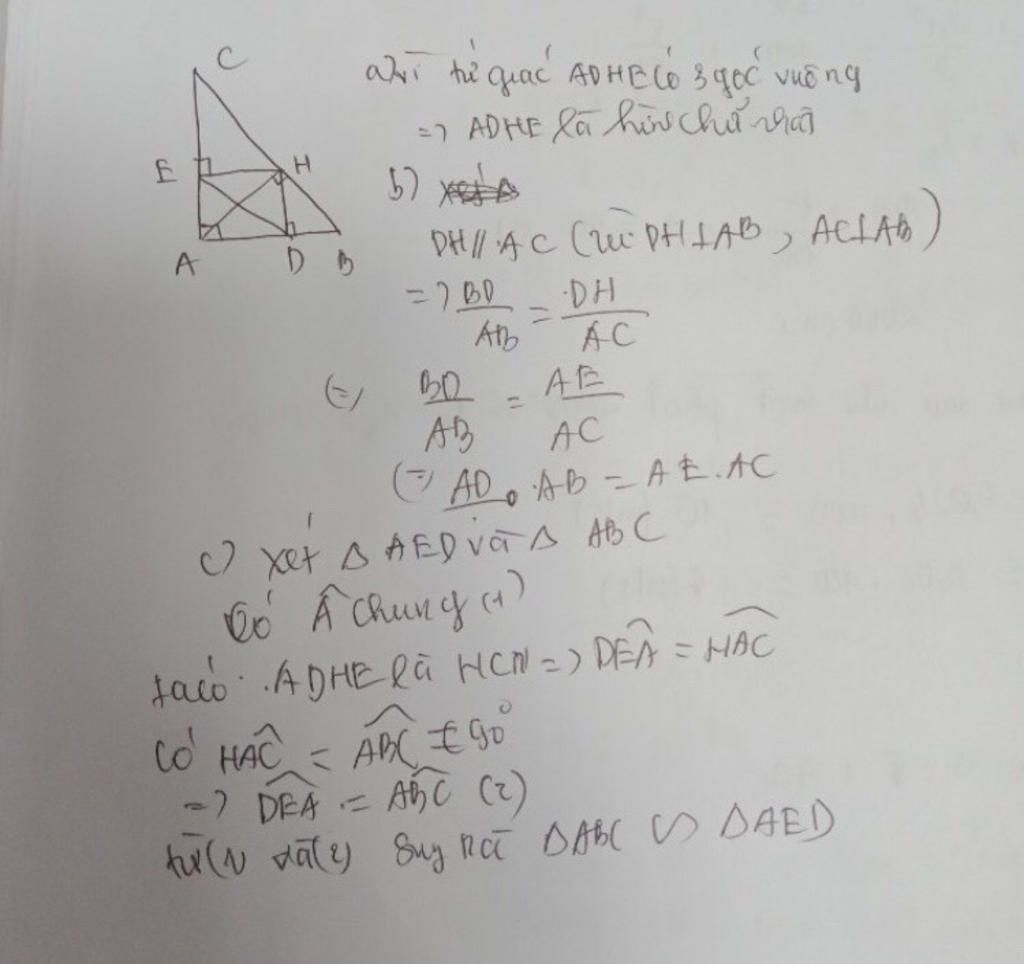 C
E
H
A
D
B
a) Vì tứ giác ADHE có 3 góc vuông
=> ADHE là hình chữ nhật
b)
DH // AC (vì DH ⊥ AB, AC ⊥ AB)
=> BD/AB = DH/AC
(=) BD/AB = AE/AC
(=) AD . AB = AE . AC
c) xét Δ AED và Δ ABC
Có Â chung (1)
ta có ADHE là HCN => DEA = HAC
Có HAC = ABC ± 90°
=> DEA = ABC (2)
từ (1) và (2) suy ra ΔABC ∽ ΔAED